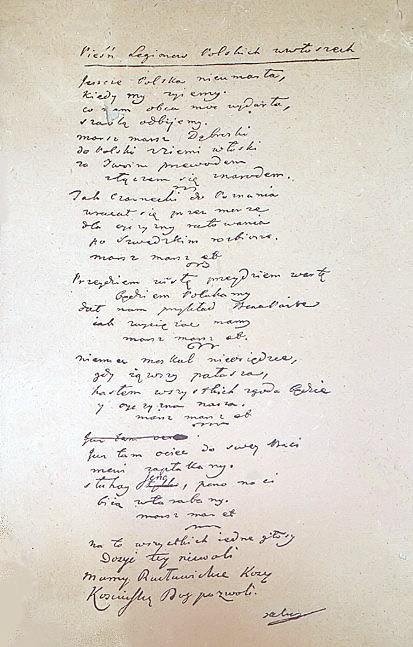 Pieśń Legionow Polskich we włoszech
Jeszcze Polska nieumarła,
kiedy my żyiemy.
co nam obca moc wydarła,
szablą odbijemy.
marsz marsz Dąbrowski
do Polski z ziemi włoski
za Twoim przewodem
złączem się z narodem.
Jak Czarnecki do Poznania
wracał się przez morze
dla oyczyzny ratowania
po Szwedzkim rozbiorze.
marsz marsz et
Przeydziem wisłę przeydziem wartę
będziem Polakamy
dał nam przykład Bonaparte
iak zwyciężać mamy
marsz marsz et.
niemiec moskal nieosiędzie,
gdy iąwszy pałasza,
hasłem wszystkich zgoda będzie
y oyczyzna nasza.
marsz marsz et
Już tam
Już tam ociec do swey Basi
mowi zapłakany.
słuchay ieno, pono nasi
biią w tarabany.
marsz mar et
na to wszystkich iedne głosy
Dosyć tey niewoli
mamy Racławickie Kosy
Kosciuszkę Bog pozwoli.